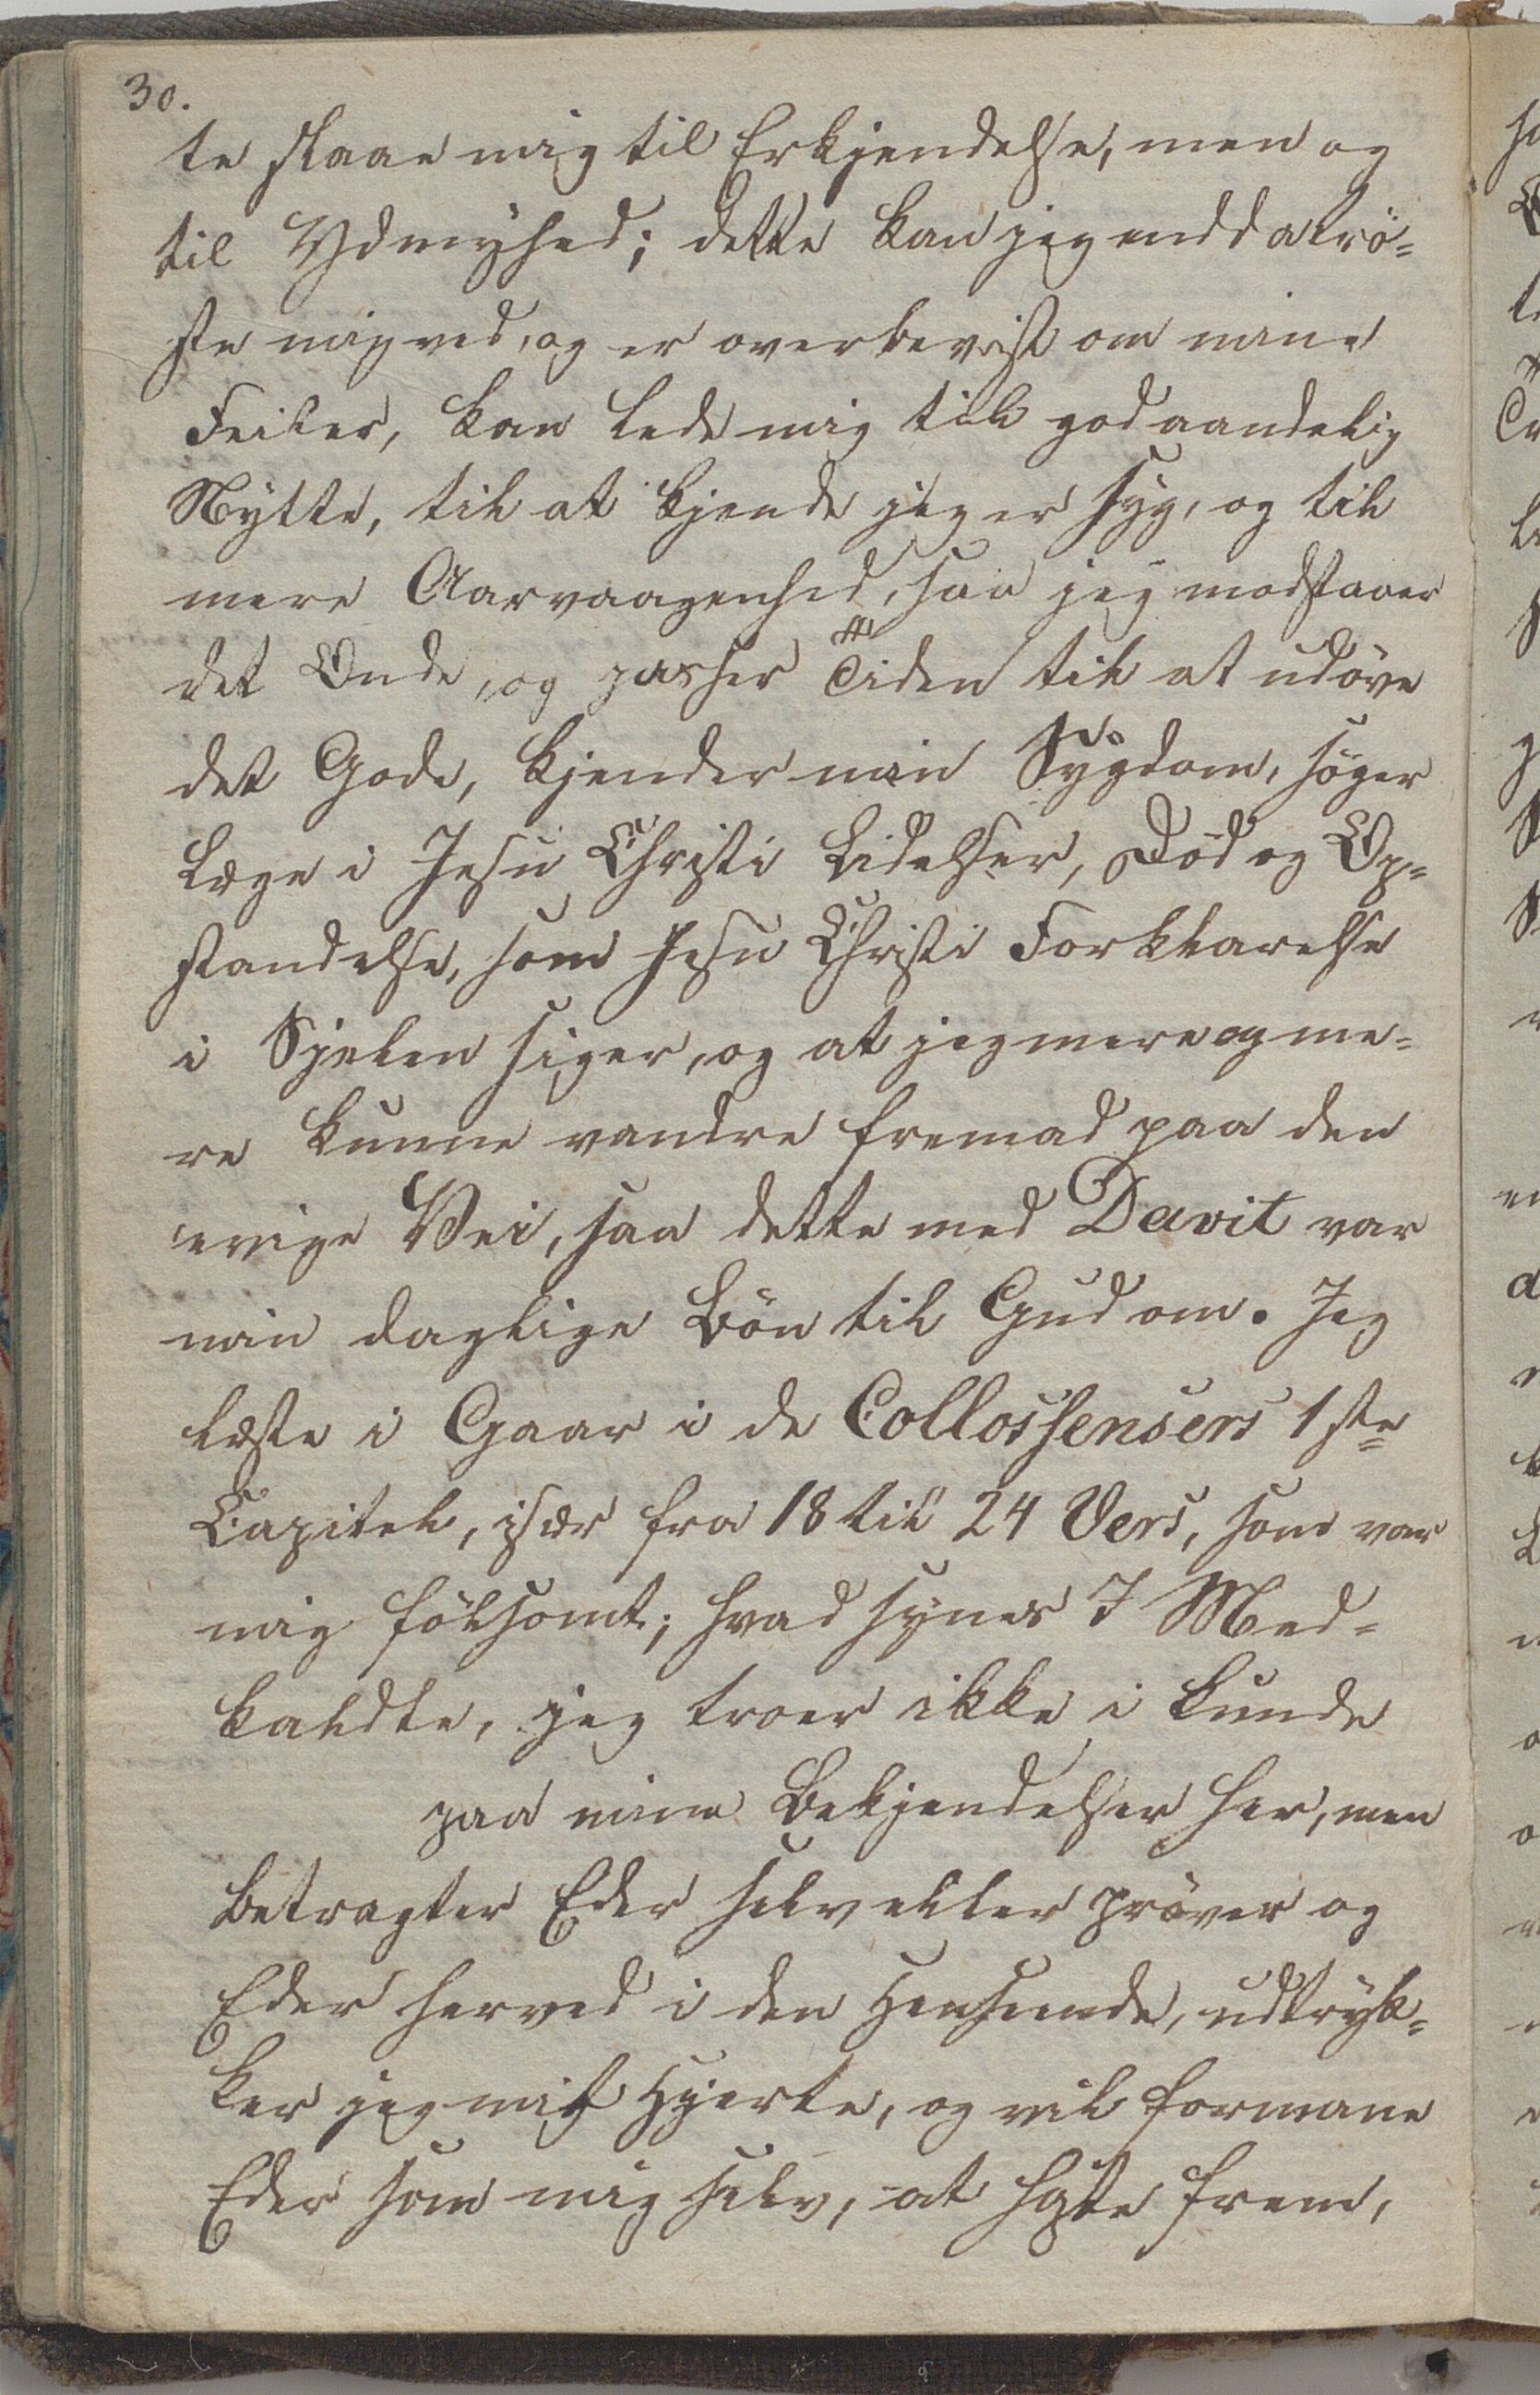 30.
te staae mig til Erkjendelse, men og
til Ydmyhed; dette kan jeg endda trö-
ste mig ved, og er overbevist om mine
Feiler, kan lede mig till god aandelig
Nytte, til at kjende jeg er syg, og til
mere Aarvaagenhed, saa jeg modstaaer
det Onde, og passer Tiden til at udöve
det Gode, kjender min Sÿgdom, söger
Læge i Jesu Christi Lidelser, Död og Op-
standelse, som Jesu Christi Forklarelse
i Sjelen siger, og at jeg mere og me-
re kunne vandre fremad paa den
evige Vei, saa dette med Davit var
min daglige Bön til Gud om. Jeg
læste i Gaar i de Collossensers 1ste
Capitel, især fra 18 til 24 Vers, som var
mig fölsomt; hvad synes I Med-
kaldte, jeg troer ikke i kunde
paa mine Bekjendelser her, men
betragter Eder selv eller pröver og
Eder herved i den Henseende, udtryk-
ker jeg mit Hjerte, og vil formane
Eder som mig selv, at haste frem,